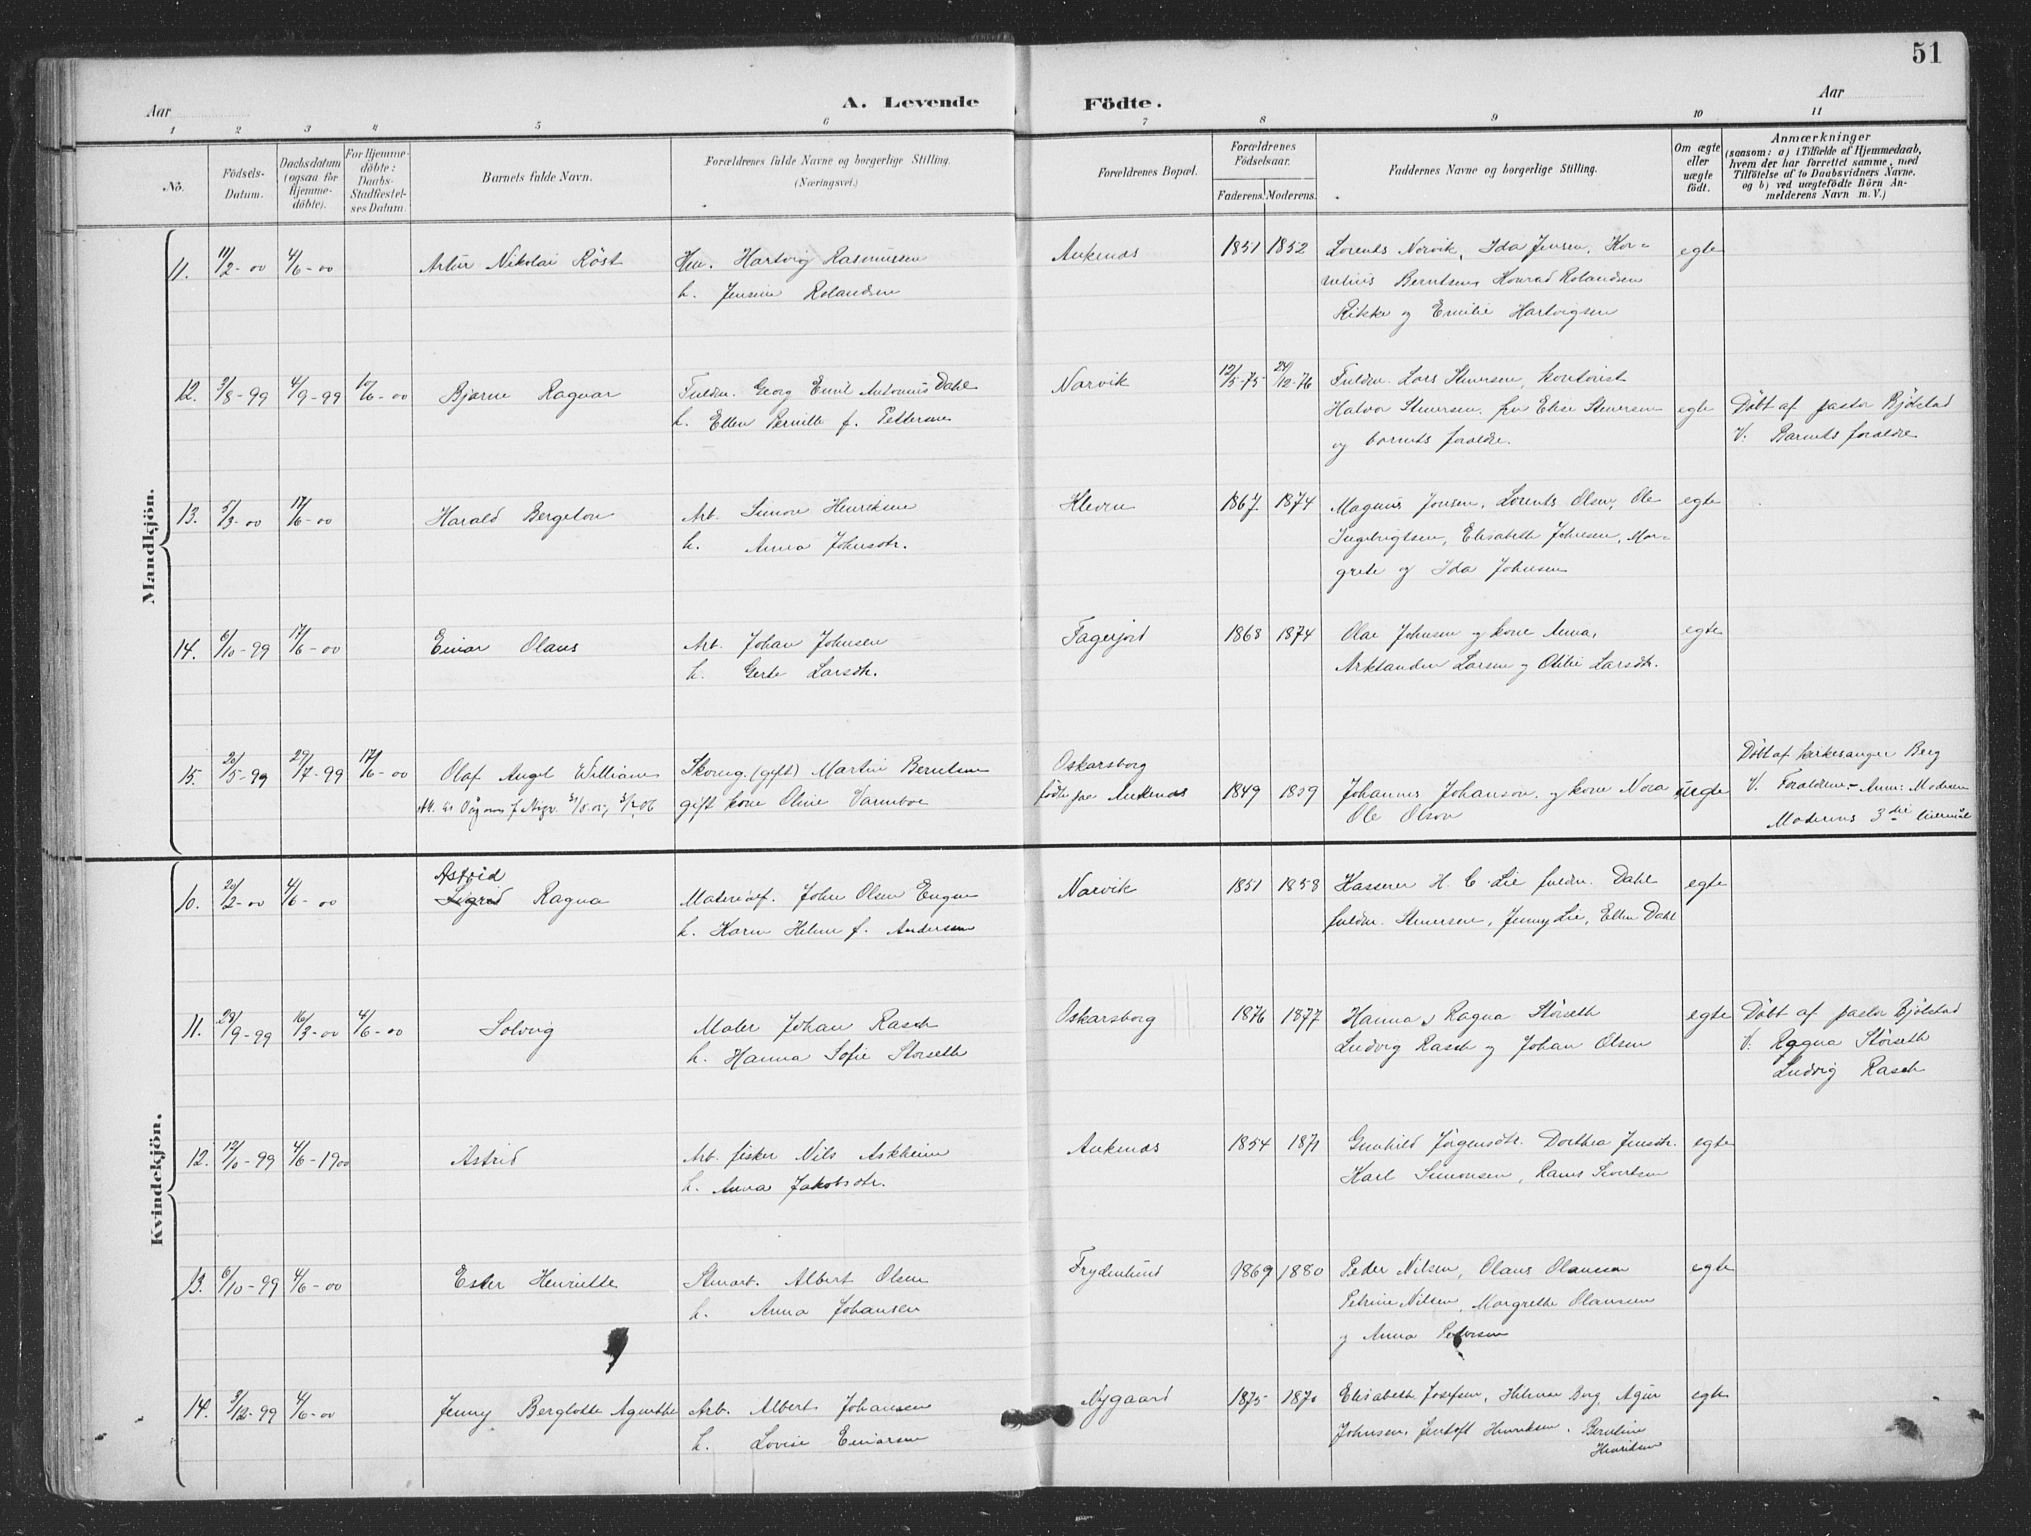 51
Aar
A. Levende Födte.
Aar
1 2 3 4 5 6 7 8 9 10 11
No.
Födsels-Datum.
Daabsdatum (ogsaa for Hjemme-döbte).
For Hjemme-döbte: Daabs-Stadfæstel-ses Datum
Barnets fulde Navn.
Forældrenes fulde Navne og borgerlige Stilling. (Næringsvei.)
Forældrenes Bopæl.
Forældrenes Födselsaar.
Faderens. Moderens.
Faddernes Navne og borgerlige Stilling.
Om ægte eller uægte født.
Anmærkninger
(saasom: a) i Tilfælde af Hjemmedaab, hvem der har forrettet samme, med Tilföielse af to Daabsvidners Navne. og b) ved uægtefödte Börn An-melderens Navn m. V.)
Mandkjön.
11. 11/2-00 4/6-00 Artur Nikolai Röst Hartvig Rasmussen Ankenes 1851 1852 Lorents Norvik, Ida Jensen, Kor= egte
h. Jensine Rolandsen nelius Berntsen, Konrad Rolandsen
Rikka og Emilie Hartvigsen
12. 3/8-99 4/9-99 10/6-00 Bjarne Ragnar Fuldm. Georg Emil Antonius Dahl Narvik 12/5-75 24/12-76 Fuldm. Lars Stenersen, kontorist
h. Ellen Pernille f. Pettersen Halvor Stenersen, fru Elise Stenersen egte Döbt af pastor Bjölstad
og barnets forældre. V. Barnets forældre
13. 5/3-00 17/6-00 Harald Bergeton Arb. Simon Henriksen Kleven 1867 1874 Magnus Jensen, Lorents Olsen, Ole egte
h. Anna Johnsdtr. Ingebrigtsen, Elisabeth Johnsen, Mar=
grete og Ida Johnsen
14. 6/10-99 17/6-00 Einar Olaus Arb. Johan Johnsen Fagerjord 1868 1874 Olae Johnsen og kone Anna, egte
h. Gerte Larsdtr. Larsen og Otilie Larsdtr.
15. 26/5-99 29/7-99 17/6-00 Olaf Angel William (gift) Martin Berntsen Oskarsborg Döbt af kirkesanger Berg
gift kone Oline Varmboe födte paa Ankenes 1849 1859 Johannes Johanson og kone Nora uegte V. Forældrene
Ole Olson Moderens 3die leiermål
Kvindekjön.
10. 20/2-00 4/6-00 Astrid
Sigrid Ragna Materialf. John Olsen Engen Narvik 1851 1858 Kasserer H. C. Lie fuldm. Dahl egte
h. Karen Helene f. Andersen fuldm. Stenersen, Jenny Lie, Ellen Dahl
11. 28/9-99 16/3-00 4/6-00 Solveig Maler Johan Rasch Oskarsborg 1876 1877 Hanna og Ragna Störseth egte Döbt af pastor Bjölstad
h. Hanna Sofie Störseth Ludvig Rasch og Johan Olsen V. Ragna Störseth
Ludvig Rasch
12. 12/10-99 4/6-1900 Astrid Arb. fisker Nils Askheim Ankenes 1854 1871 Gunhild Jörgensdtr. Dorthea Jensdtr. egte
h. Anna Jakobsdtr. Karl Simonsen, Sivertsen
13. 6/10-99 4/6-00 Ester Henriette Albert Olsen Frydenlund 1869 1880 Peder Nilsen, Olaus Olaussen egte
h. Anna Johansen Petrine Nilsen, Margrethe Olaussen
og Anna Pedersen
14. 3/12-99 4/6-00 Jenny Berglotte Agnethe Arb. Albert Johansen Nygaard 1875 1870 Elisabeth Josefsen, Helmer Borg, egte
h. Lovise Einarsen Johnsen, Jentoft Henriksen, Berntine
Henriksen